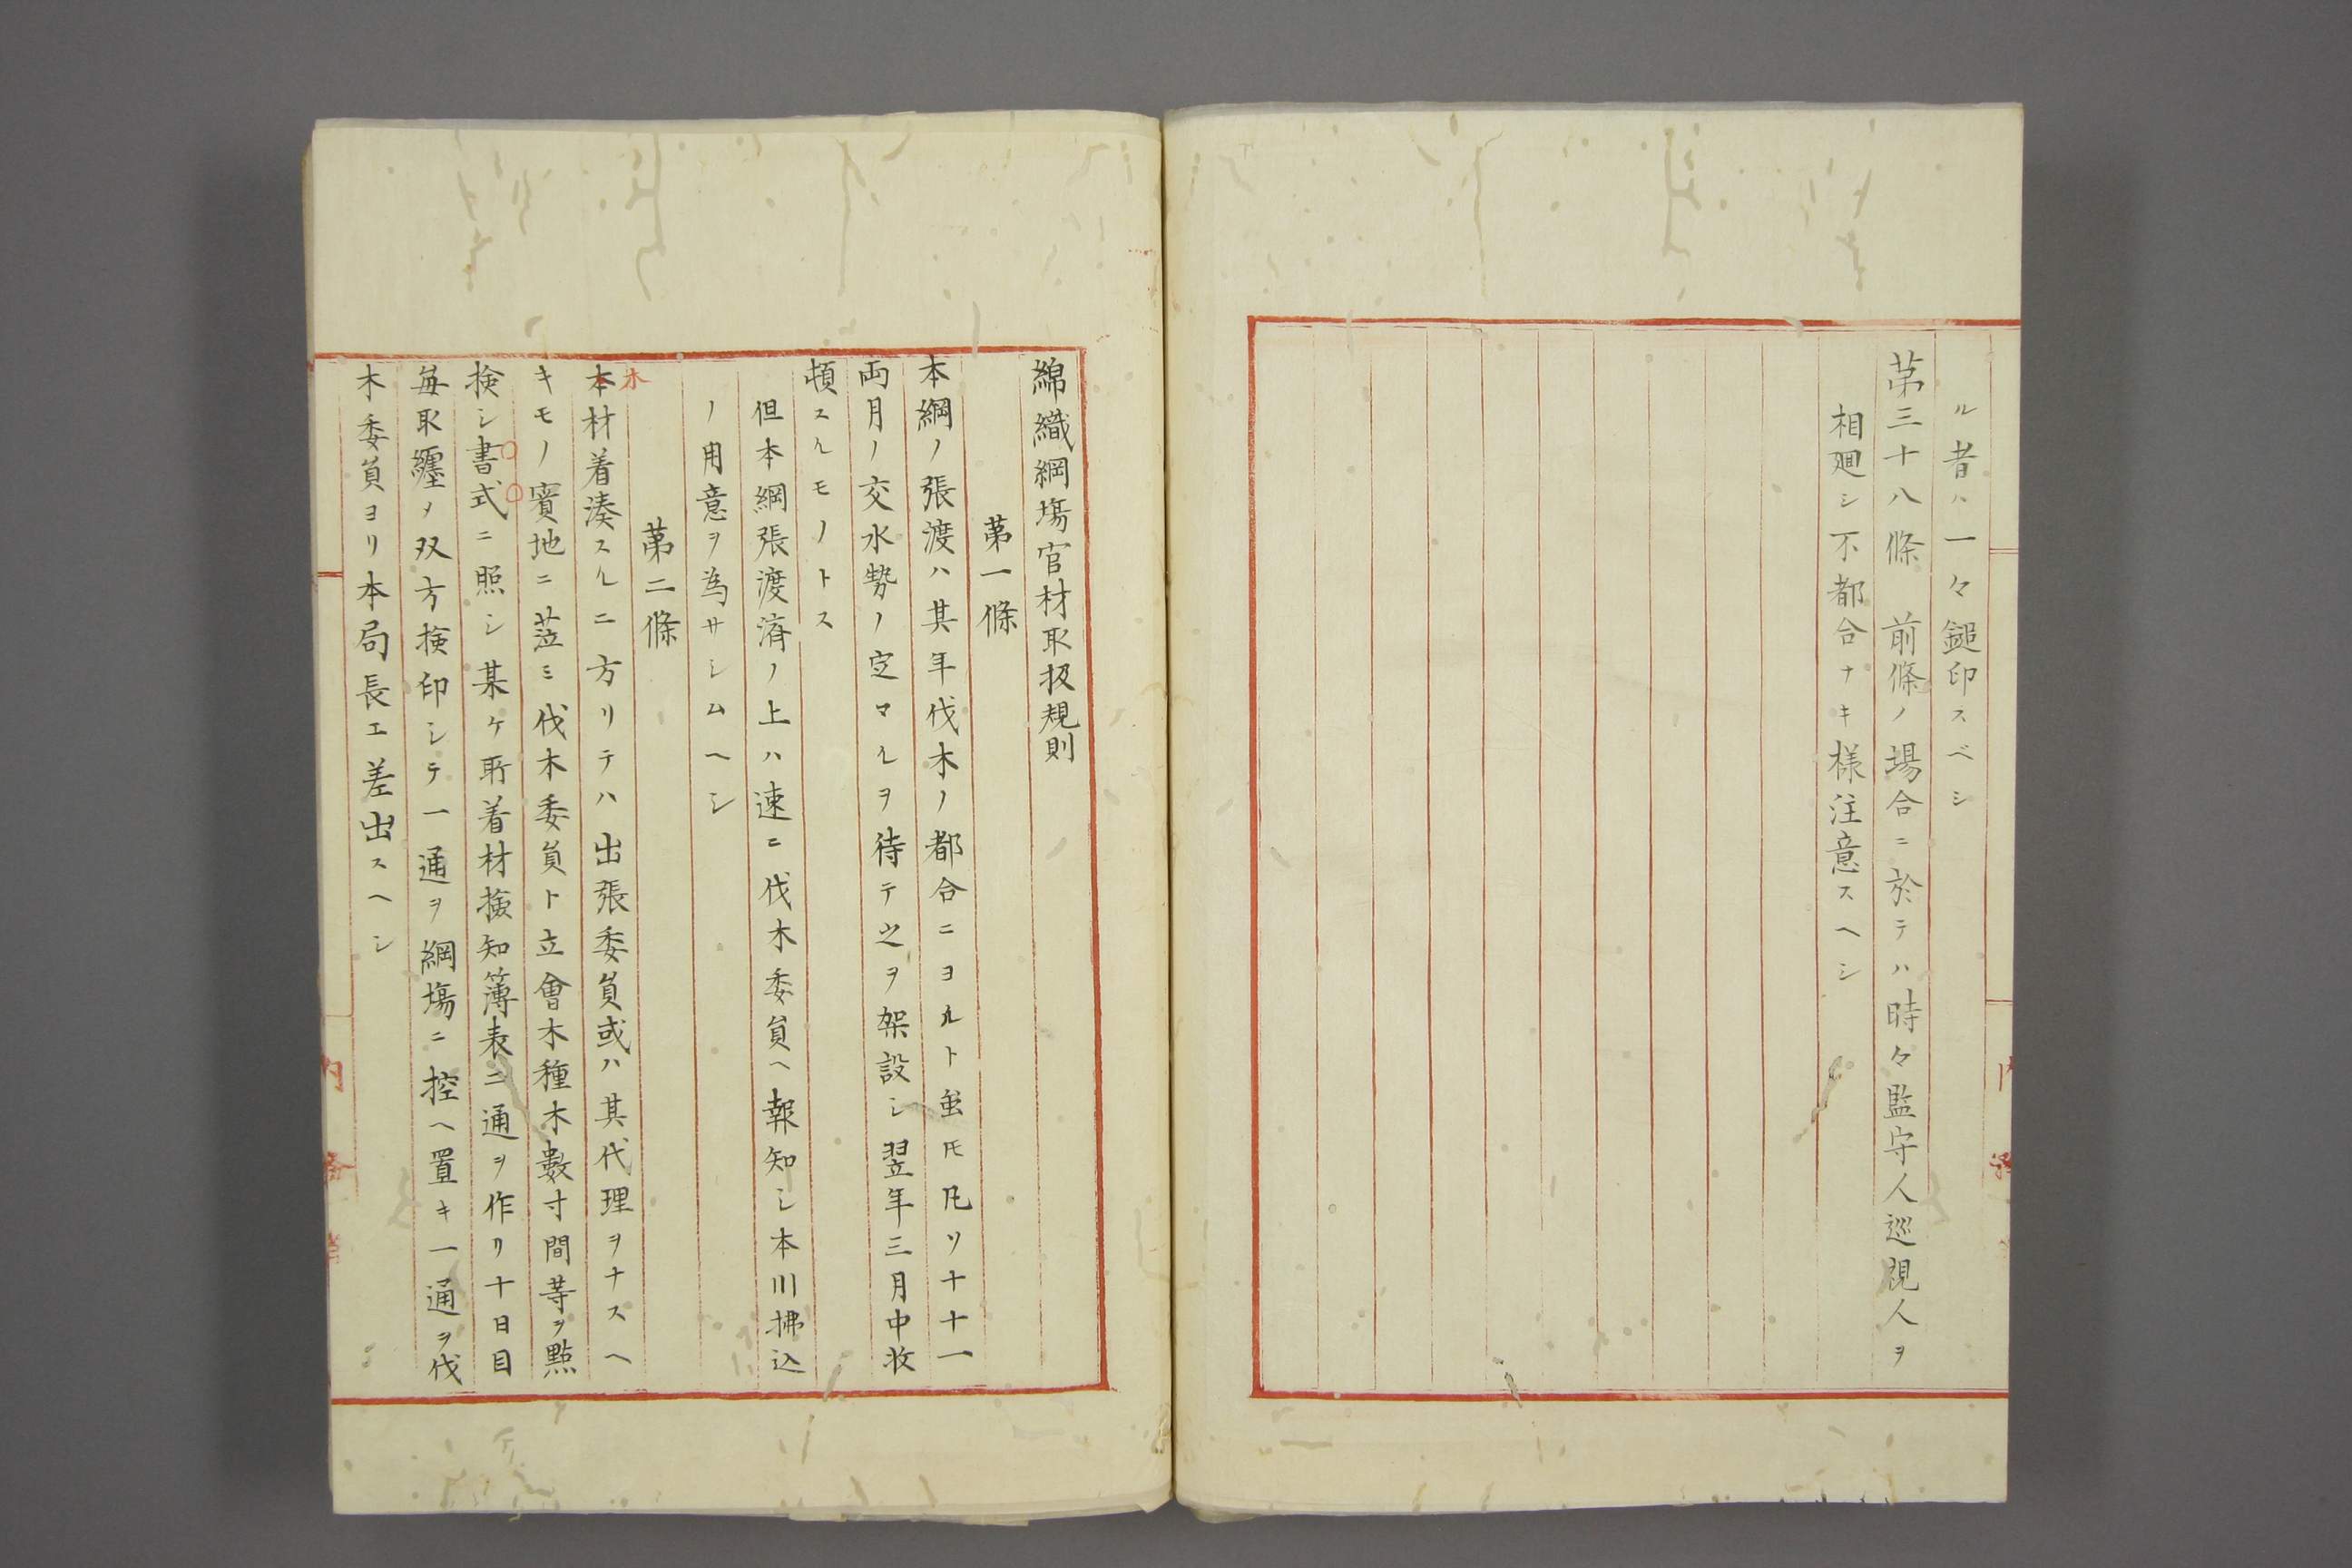 ル者ハ一々鎚印スベシ
第三十八條 前條ノ場合ニ於テハ時々監守人巡視人ヲ
相廻シ不都合ナキ様注意スヘシ
綿織綱塲官材取扱規則
第一條
本綱ノ張渡ハ其年伐木ノ都合ニヨルト虽𪜈凡ソ十十一
両月ノ交水勢ノ定マルヲ待テ之ヲ架設シ翌年三月中收
頓スルモノトス
但本綱張渡済ノ上ハ速ニ伐木委員ヘ報知シ本川拂込
ノ用意ヲ為サシムヘシ
第二條
木
本材着湊スルニ方リテハ出張委員或ハ其代理ヲナスヘ
キモノ實地ニ莅ミ伐木委員ト立會木種木數寸間等ヲ㸃
検シ書式ニ照シ某ケ所着材撿知簿表二通ヲ作リ十日目
毎取纏メ双方検印シテ一通ヲ綱塲ニ控ヘ置キ一通ヲ伐
木委員ヨリ本局長エ差出スヘシ
内務省